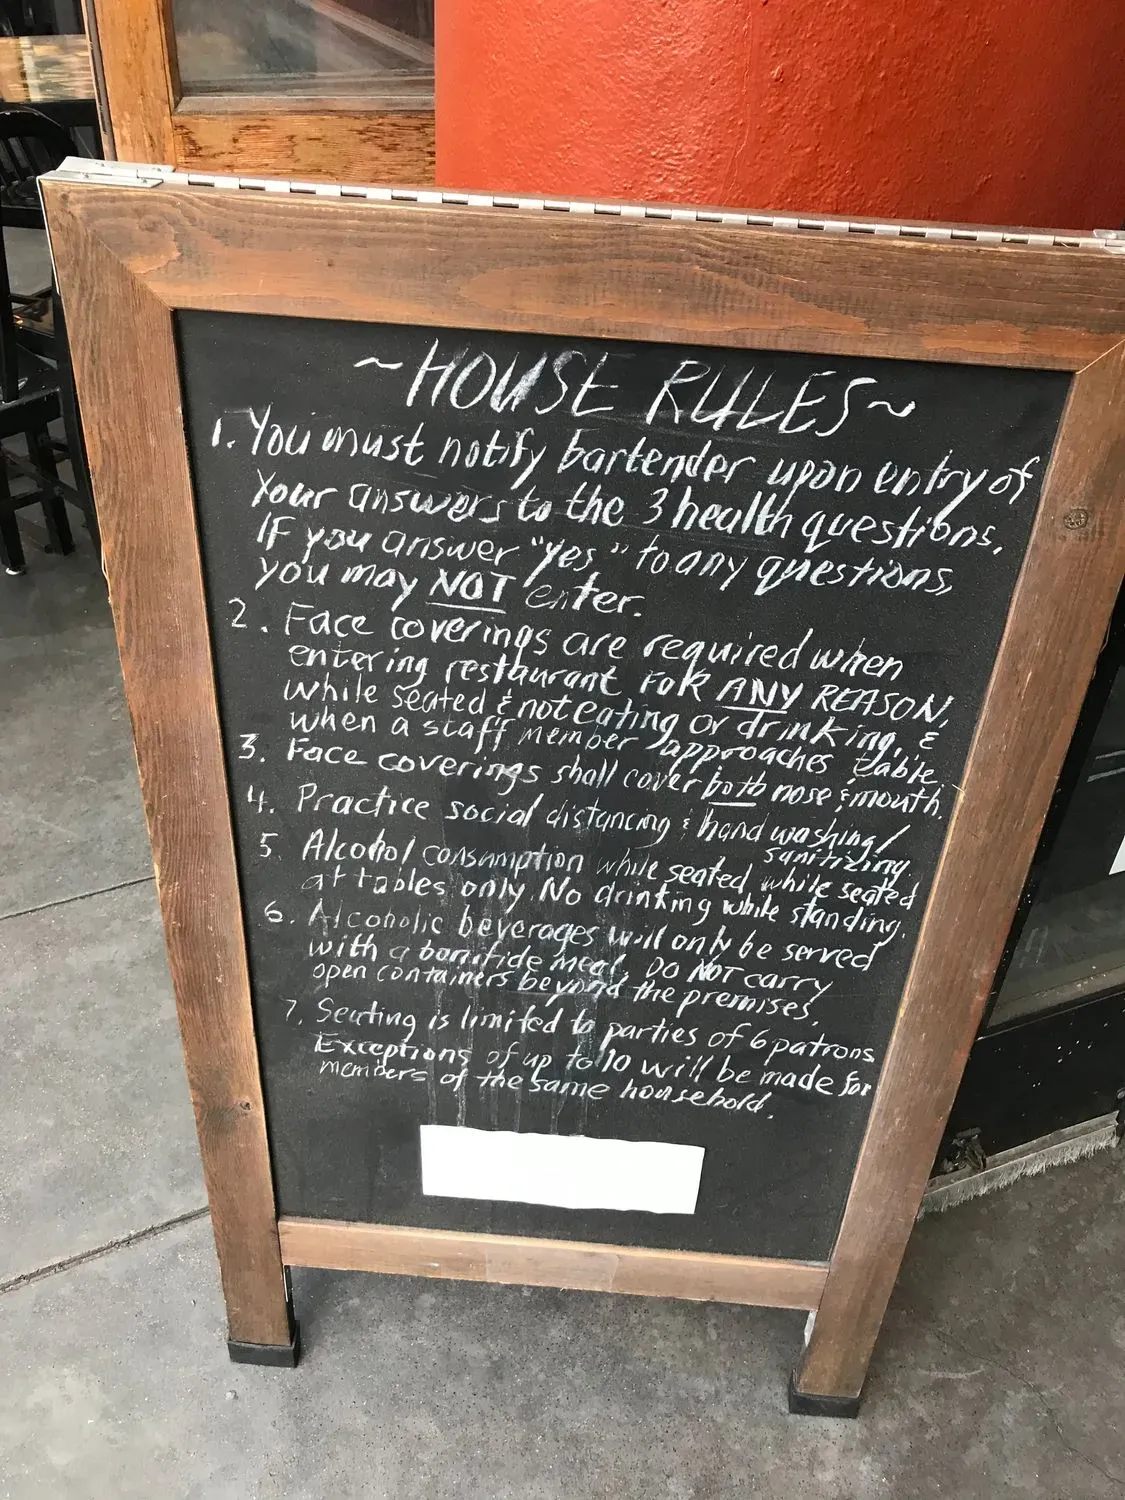 ~HOUSE RULES~
1. You must notify bartender upon entry of
your answers to the 3 health questions.
IF you answer "yes" to any questions,
you may NOT enter.
2. Face coverings are required when
entering restaurant FOR ANY REASON,
while seated & not eating or drinking, &
when a staff member approaches table.
3. Face coverings shall cover both nose & mouth.
4. Practice social distancing & hand washing/
sanitizing.
5. Alcohol consumption while seated, while seated
at tables only. No drinking while standing.
6. Alcoholic beverages will only be served
with a bonifide meal. Do NOT carry
open containers beyond the premises.
7. Seating is limited to parties of 6 patrons
Exceptions of up to 10 will be made for
members of the same household.